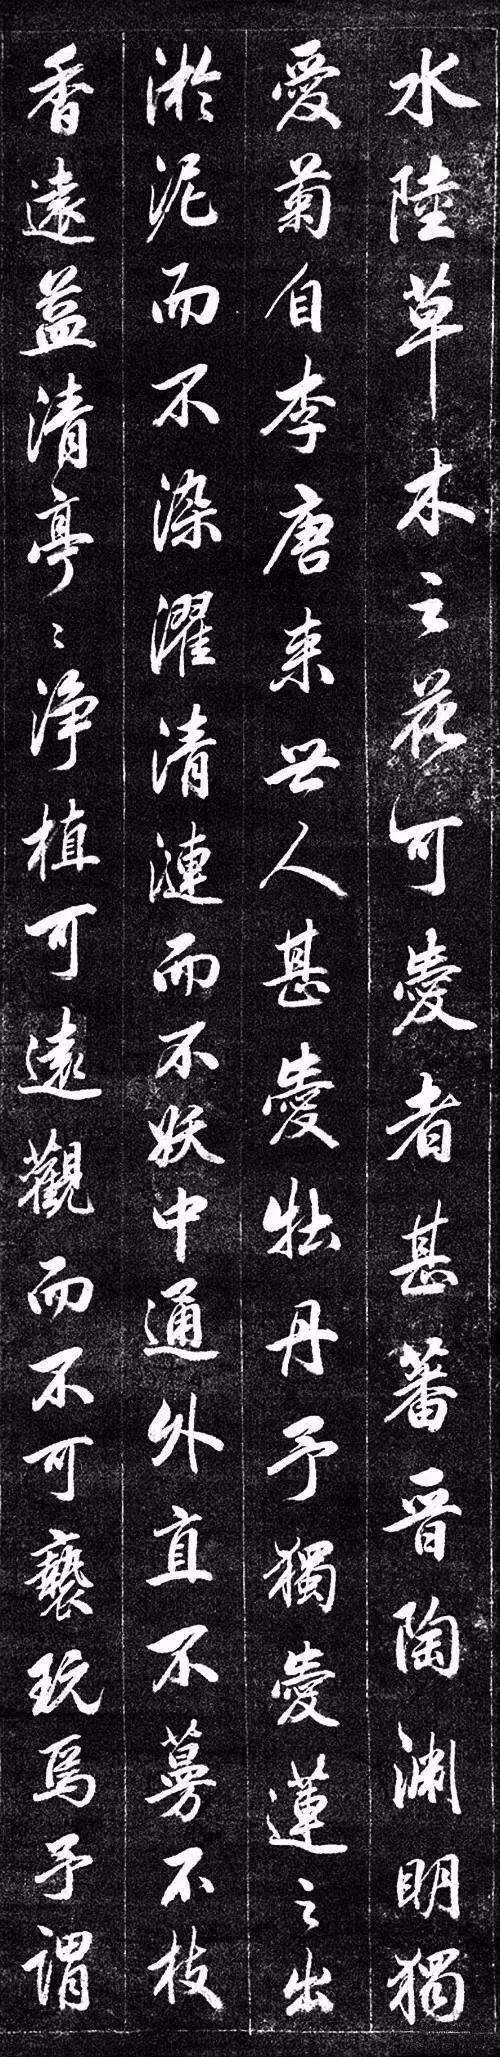 水陸草木之花可愛者甚蕃晉陶渊明獨
愛菊自李唐来世人甚愛牡丹予獨愛蓮之出
淤泥而不染濯清漣而不妖中通外直不蔓不枝
香遠益清亭〻净植可遠觀而不可褻玩焉予謂